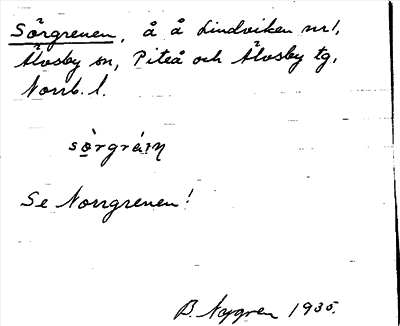 Sörgrenen, å å Lindviken nr 1,
Älvsby sn, Piteå och Älvsby tg,
Norrb. l.
sòrgré:ṇ
Se Norrgrenen!
B. Nygren 1935.